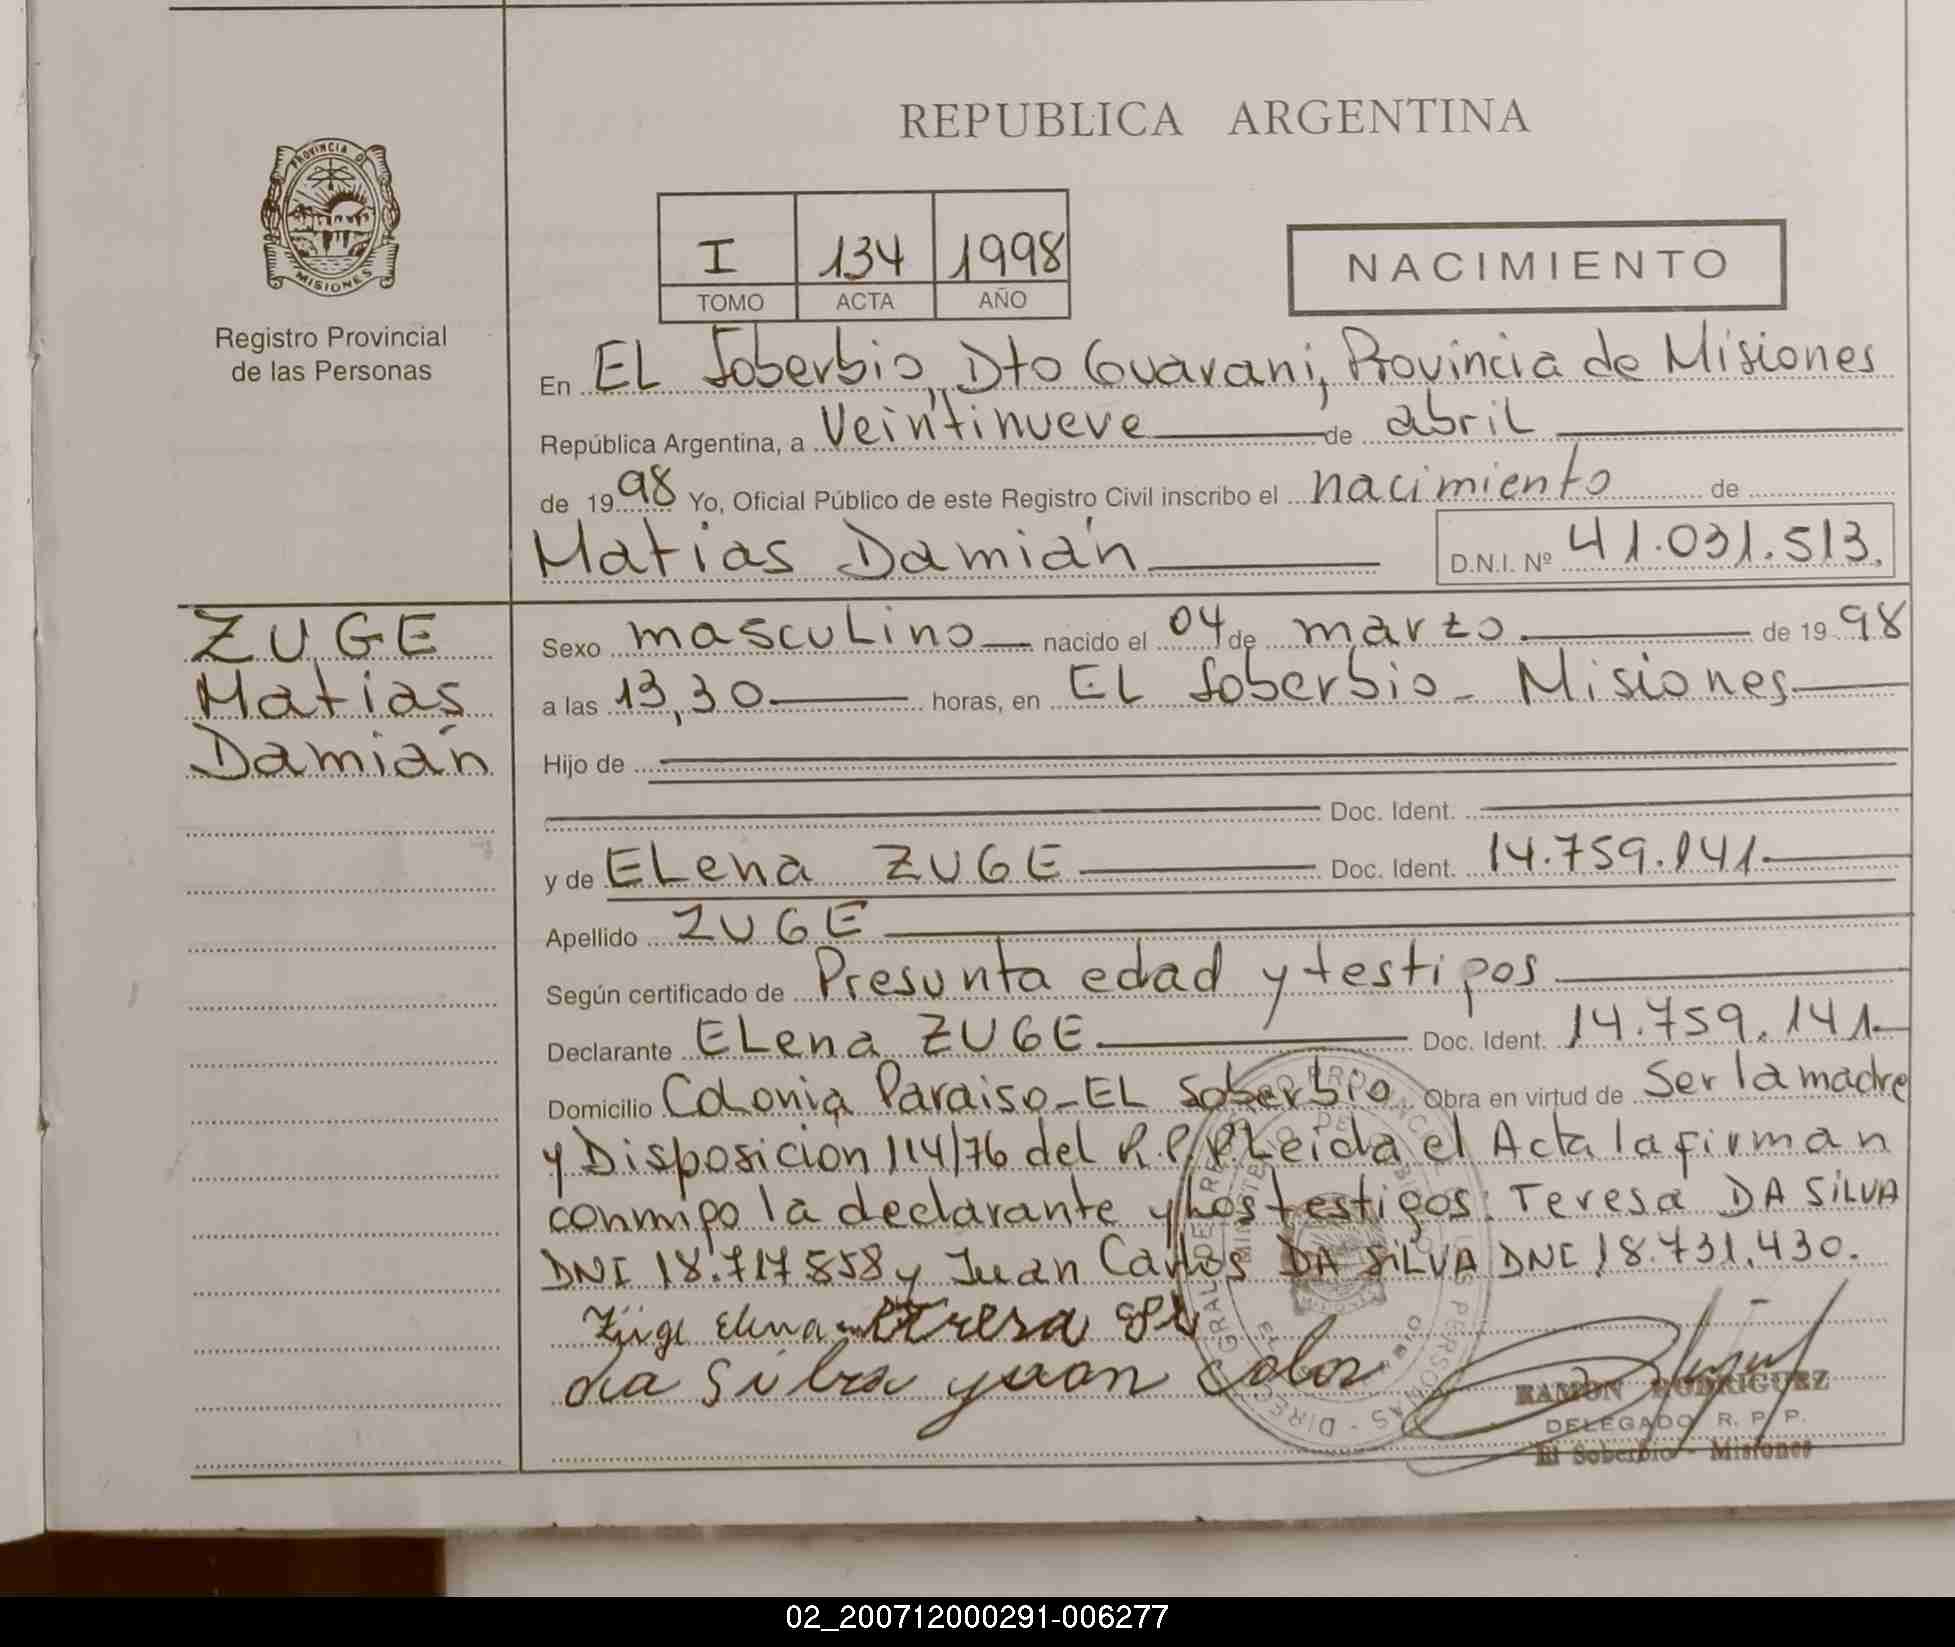 REPUBLICA ARGENTINA
PROVINCIA DE
MISIONES
Registro Provincial
de las Personas
I 134 1998
TOMO ACTA AÑO
NACIMIENTO
En EL Soberbio, Dto Guarani, Provincia de Misiones
República Argentina, a Veintinueve de abril
de 1998 Yo, Oficial Público de este Registro Civil inscribo el nacimiento de
Matias Damián D.N.I. Nº 41.031.513.
ZUGE
Matias
Damián
Sexo masculino nacido el 04 de marzo de 1998
a las 13,30 horas, en EL Soberbio - Misiones
Hijo de
Doc. Ident.
y de ELena ZUGE Doc. Ident. 14.759.141
Apellido ZUGE
Según certificado de Presunta edad y testigos
Declarante ELena ZUGE Doc. Ident. 14.759.141
Domicilio Colonia Paraiso - EL Soberbio Obra en virtud de Ser la madre
y Disposicion 114/76 del R.P.P. Leida el Acta la firman
conmigo la declarante y los testigos: Teresa DA SILVA
DNI 18.717.558 y Juan Carlos DA SILVA DNI 18.731.430.
Züge Elena
da Silva
RAMON RODRIGUEZ
DELEGADO R. P. P.
El Soberbio - Misiones
02_200712000291-006277